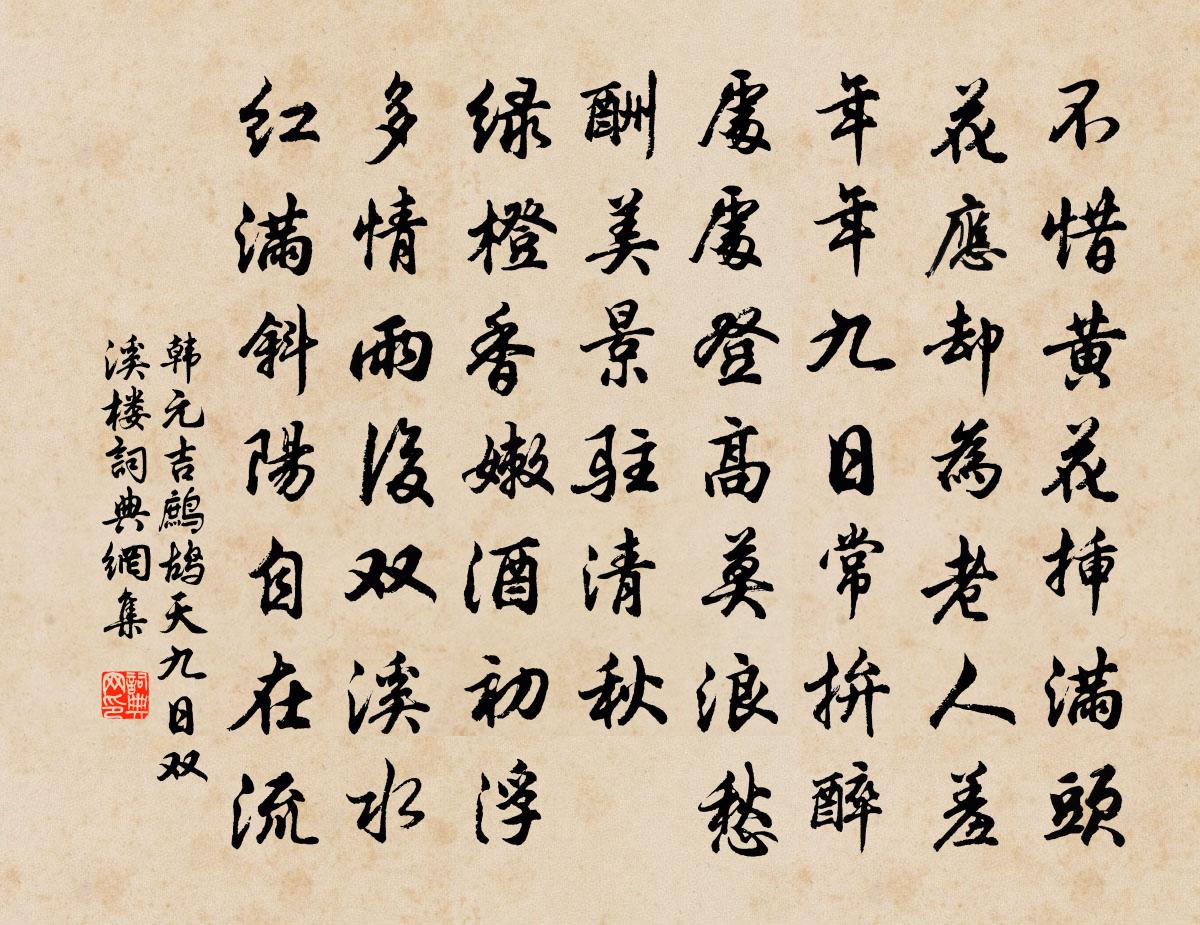 不惜黄花插满頭
花應却為老人羞
年年九日常拚醉
處處登高莫浪愁
酬美景駐清秋
绿橙香嫩酒初浮
多情雨後双溪水
红满斜陽自在流
韩元吉鹧鸪天九日双
溪楼詞典網集
詞典
网印